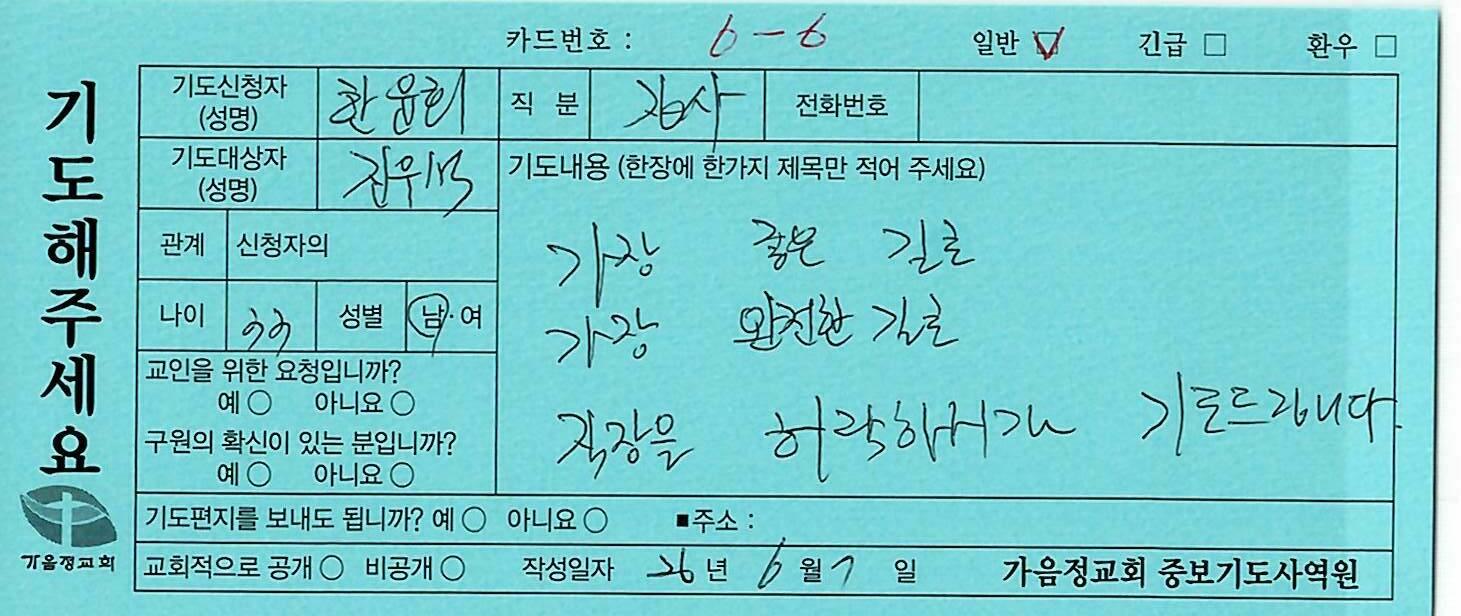 카드번호 : 6-6 일반 ☑ 긴급 □ 환우 □
기도해주세요
가음정교회
기도신청자 (성명) 한윤희 직 분 집사 전화번호
기도대상자 (성명)
기도내용 (한장에 한가지 제목만 적어 주세요)
가장 좋은 길로
가장 완전한 길로
직장을 허락하시길 기도드립니다.
관계 신청자의
나이 성별 남·여
교인을 위한 요청입니까?
예 ○ 아니요 ○
구원의 확신이 있는 분입니까?
예 ○ 아니요 ○
기도편지를 보내도 됩니까? 예 ○ 아니요 ○ ■주소 :
교회적으로 공개 ○ 비공개 ○ 작성일자 26년 6월 7일 가음정교회 중보기도사역원